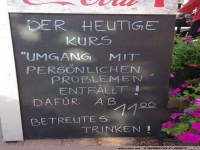 DER HEUTIGE
KURS
"UMGANG MIT
PERSÖNLICHEN
PROBLEMEN"
ENTFÄLLT!
DAFÜR AB 11⁰⁰
BETREUTES
TRINKEN!